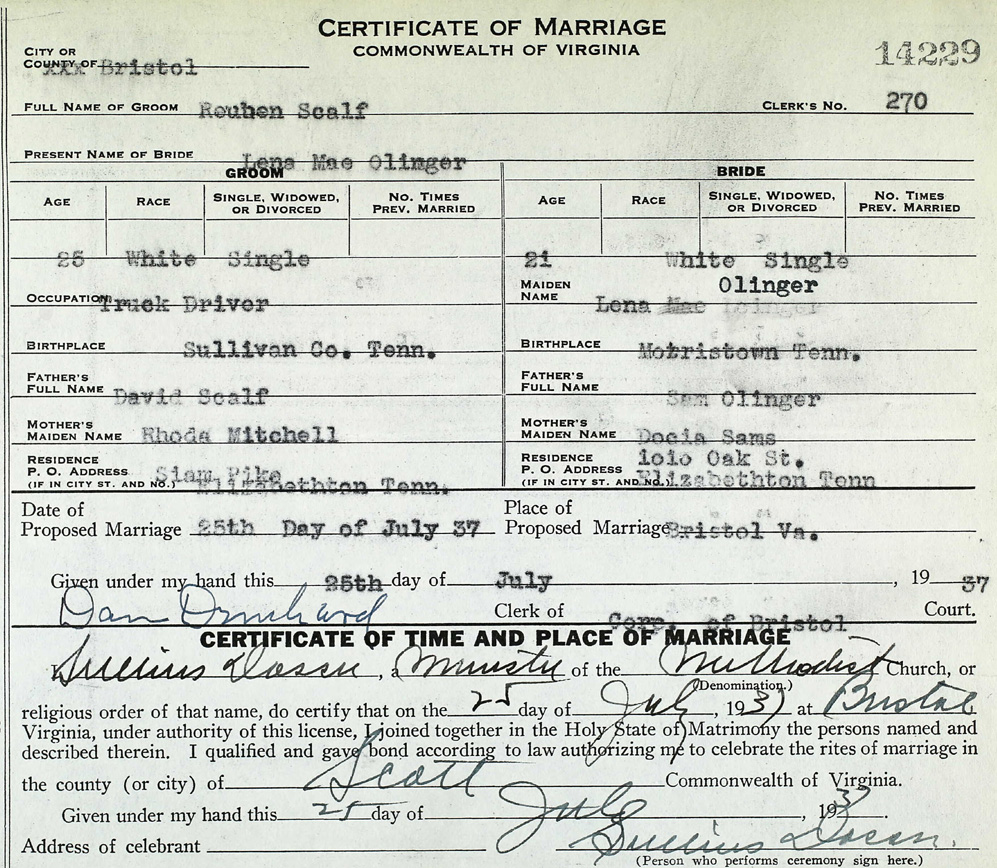 CERTIFICATE OF MARRIAGE
COMMONWEALTH OF VIRGINIA
14229
CITY OR
COUNTY OF xxx Bristol
FULL NAME OF GROOM Reuben Scalf CLERK'S NO. 270
PRESENT NAME OF BRIDE Lena Mae Olinger
GROOM BRIDE
AGE RACE SINGLE, WIDOWED, OR DIVORCED NO. TIMES PREV. MARRIED AGE RACE SINGLE, WIDOWED, OR DIVORCED NO. TIMES PREV. MARRIED
25 White Single 21 White Single
OCCUPATION Truck Driver MAIDEN NAME Lena Mae Olinger
BIRTHPLACE Sullivan Co. Tenn. BIRTHPLACE Morristown Tenn.
FATHER'S FULL NAME David Scalf FATHER'S FULL NAME Sam Olinger
MOTHER'S MAIDEN NAME Rhoda Mitchell MOTHER'S MAIDEN NAME Docia Sams
RESIDENCE P. O. ADDRESS (IF IN CITY ST. AND NO.) Siam Pike Elizabethton Tenn. RESIDENCE P. O. ADDRESS (IF IN CITY ST. AND NO.) 1010 Oak St. Elizabethton Tenn
Date of Proposed Marriage 25th Day of July 37 Place of Proposed Marriage Bristol Va.
Given under my hand this 25th day of July, 19 37
Dan Clerk of Corp. of Bristol Court.
CERTIFICATE OF TIME AND PLACE OF MARRIAGE
I, , a Minister of the Methodist Church, or
(Denomination.)
religious order of that name, do certify that on the 25 day of July, 1937 at Bristol,
Virginia, under authority of this license, I joined together in the Holy State of Matrimony the persons named and
described therein. I qualified and gave bond according to law authorizing me to celebrate the rites of marriage in
the county (or city) of Scott Commonwealth of Virginia.
Given under my hand this 25 day of July, 1937.
Address of celebrant
(Person who performs ceremony sign here.)